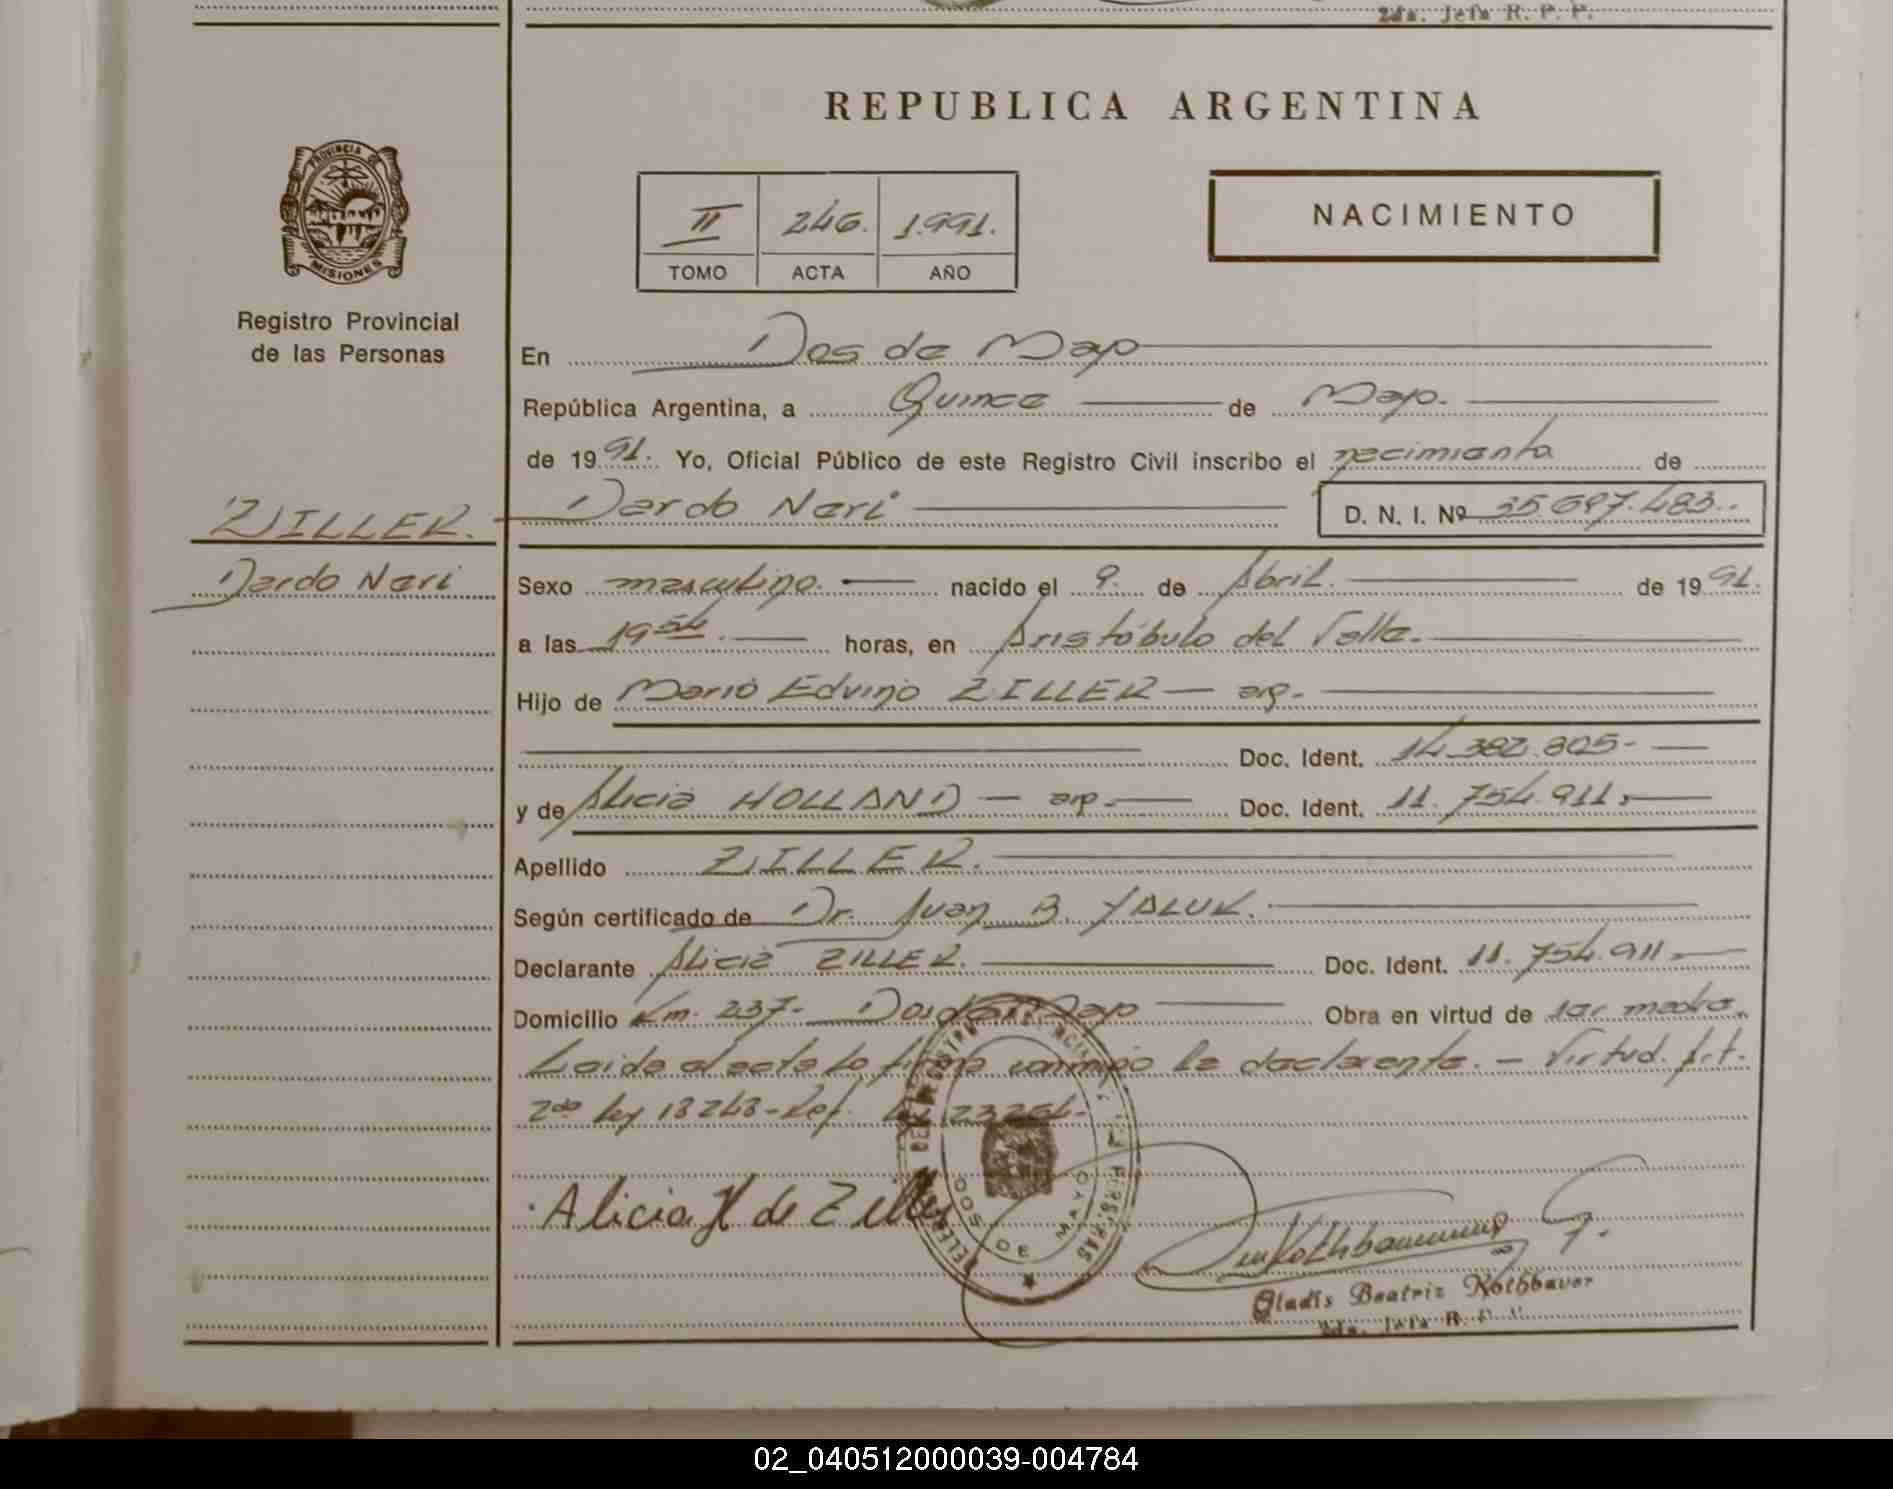 2da. Jefa R. P. P.
REPUBLICA ARGENTINA
PROVINCIA DE
MISIONES
Registro Provincial
de las Personas
II 246. 1.991.
TOMO ACTA AÑO
NACIMIENTO
En Dos de Mayo
República Argentina, a Quince de Mayo.
de 1991. Yo, Oficial Público de este Registro Civil inscribo el nacimiento de
Dardo Neri D. N. I. Nº 35.697.483.
ZILLER.
Dardo Neri
Sexo masculino. nacido el 9. de Abril. de 1991.
a las 19 54. horas, en Aristóbulo del Valle.
Hijo de Mario Edvino ZILLER — arg.
Doc. Ident. 14.382.805-
y de Alicia HOLLAND — arg. Doc. Ident. 11.754.911.
Apellido ZILLER.
Según certificado de Dr. Juan B. YALUK.
Declarante Alicia ZILLER. Doc. Ident. 11.754.911.
Domicilio Km. 237- Dos de Mayo Obra en virtud de
Leida el acta la firma conmigo la declarante. - Virtud. Art.
2do ley 18248-Ref. 23264-
DOS DE MAYO
Alicia H de Ziller
Gladis Beatriz Rothbauer
2da. Jefa R. P. P.
02_040512000039-004784